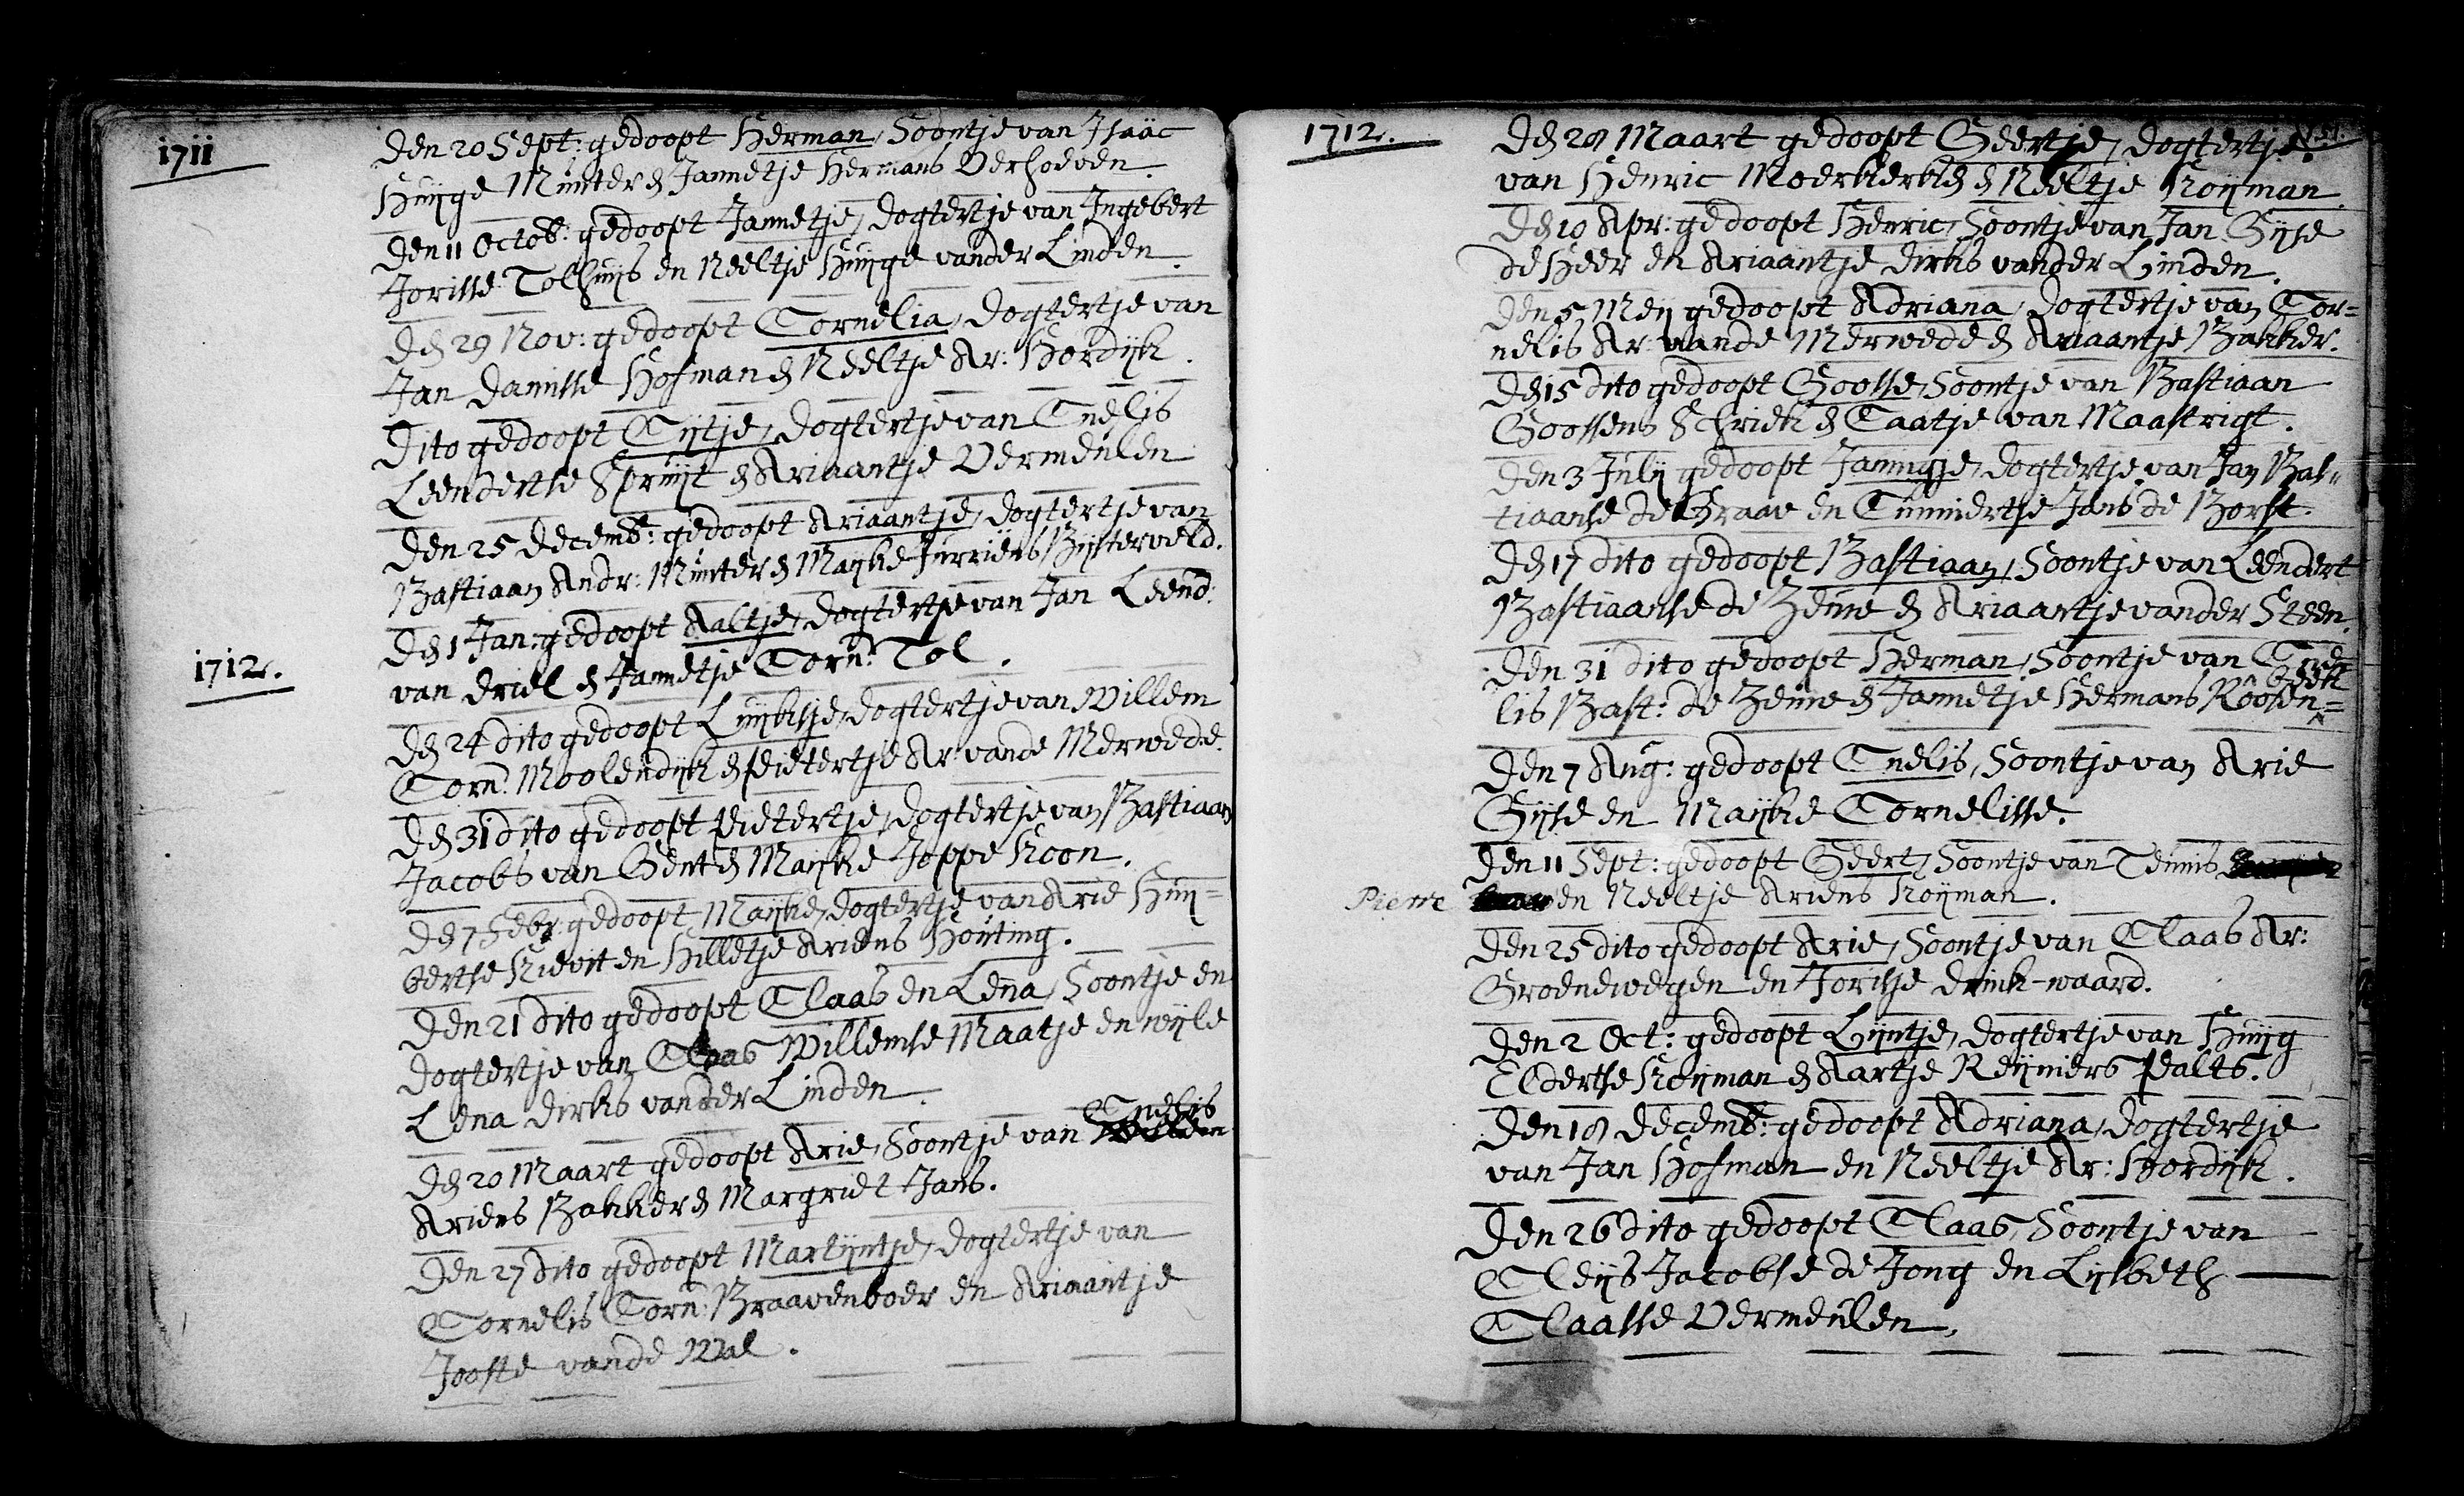 1711
Den 20 Sept: gedoopt Herman, Soontje van Isaäc
Huijge Munter en Jannetje Hermans Verhoeven.
Den 11 Octob: gedoopt Jannetje, dogtertje van Ingebert
Jorisse Tolhuijs en Neeltje Huijge vander Linden.
Den 29 Nov: gedoopt Cornelia, dogtertje van
Jan Danisse Hofman en Neeltje Ar: Hordijk.
Dito gedoopt Cijtje, dogtertje van Cnelis
Leendertse Spruijt en Ariaantje Vermeulen
Den 25 Decemb: gedoopt Ariaantje, dogtertje van
Bastiaan Andr: Munter en Maijke Jurriens Bijsterveld.
1712.
Den 1 Jan: gedoopt Aaltje, dogtertje van Jan Leend:
van Driel en Jannetje Corn: Tol.
Den 24 dito gedoopt Luijktje, dogtertje van Willem
Corn: Moolendijk en Pietertje Ar: vande Merwede.
Den 31 dito gedoopt Pietertje, dogtertje van Bastiaan
Jacobs van Gent en Maijke Joppe Koon.
Den 7 Febr: gedoopt Maijke, dogtertje van Arie Huij-
bertse Kievit en Hilletje Ariens Houting.
Den 21 dito gedoopt Claas en Lena, Soontje en
dogtertje van Claas Willemse Maatje en wijle
Lena Dirks vander Linden.
Den 20 Maart gedoopt Arie, Soontje van Cnelis
Ariens Bakker en Margriet Jans.
Den 27 dito gedoopt Martijntje, dogtertje van
Cornelis Corn: Braavenboer en Ariaantje
Jooste vande Wal.
1712.
151.
Den 28 Maart gedoopt Geertje, dogtertje
van Henric Moerkerken en Neeltje Koijman.
Den 10 Apr: gedoopt Henric, Soontje van Jan Gijse
de Heer en Ariaantje Dirks vander Linden.
Den 5 Meij gedoopt Adriana, dogtertje van Cor-
nelis Ar: vande Merwede en Ariaantje Bakker.
Den 15 dito gedoopt Goosse, Soontje van Bastiaan
Goossens Schriek en Taatje van Maastrigt.
Den 3 Julij gedoopt Jannigje, dogtertje van Jan Bas-
tiaanse de Graav en Cunnertse Jans de Borst.
Den 17 dito gedoopt Bastiaan, Soontje van Leendert
Bastiaanse de Zeuwe en Ariaantje vander Steen.
Den 31 dito gedoopt Herman, Soontje van Corne-
lis Bast: de Zeuwe en Jannetje Hermans Roosen=
beek
Den 7 Aug: gedoopt Cnelis, Soontje van Arie
Gijse en Maijke Cornelisse.
Den 11 Sept: gedoopt Geert, Soontje van Teunis
Pierre en Neeltje Ariens Koijman.
Den 25 dito gedoopt Arie, Soontje van Claas Ar:
Groenewegen en Jorisje Drink-waard.
Den 2 Oct: gedoopt Lijntje, dogtertje van Huijg
Eldertse Koijman en Aartje Reijniers Palts.
Den 18 Decemb: gedoopt Adriana, dogtertje
van Jan Hofman en Neeltje Ar: Hordijk.
Den 26 dito gedoopt Claas, Soontje van
Cleijs Jacobse de Jong en Lijsbeth
Claasse Vermeulen.